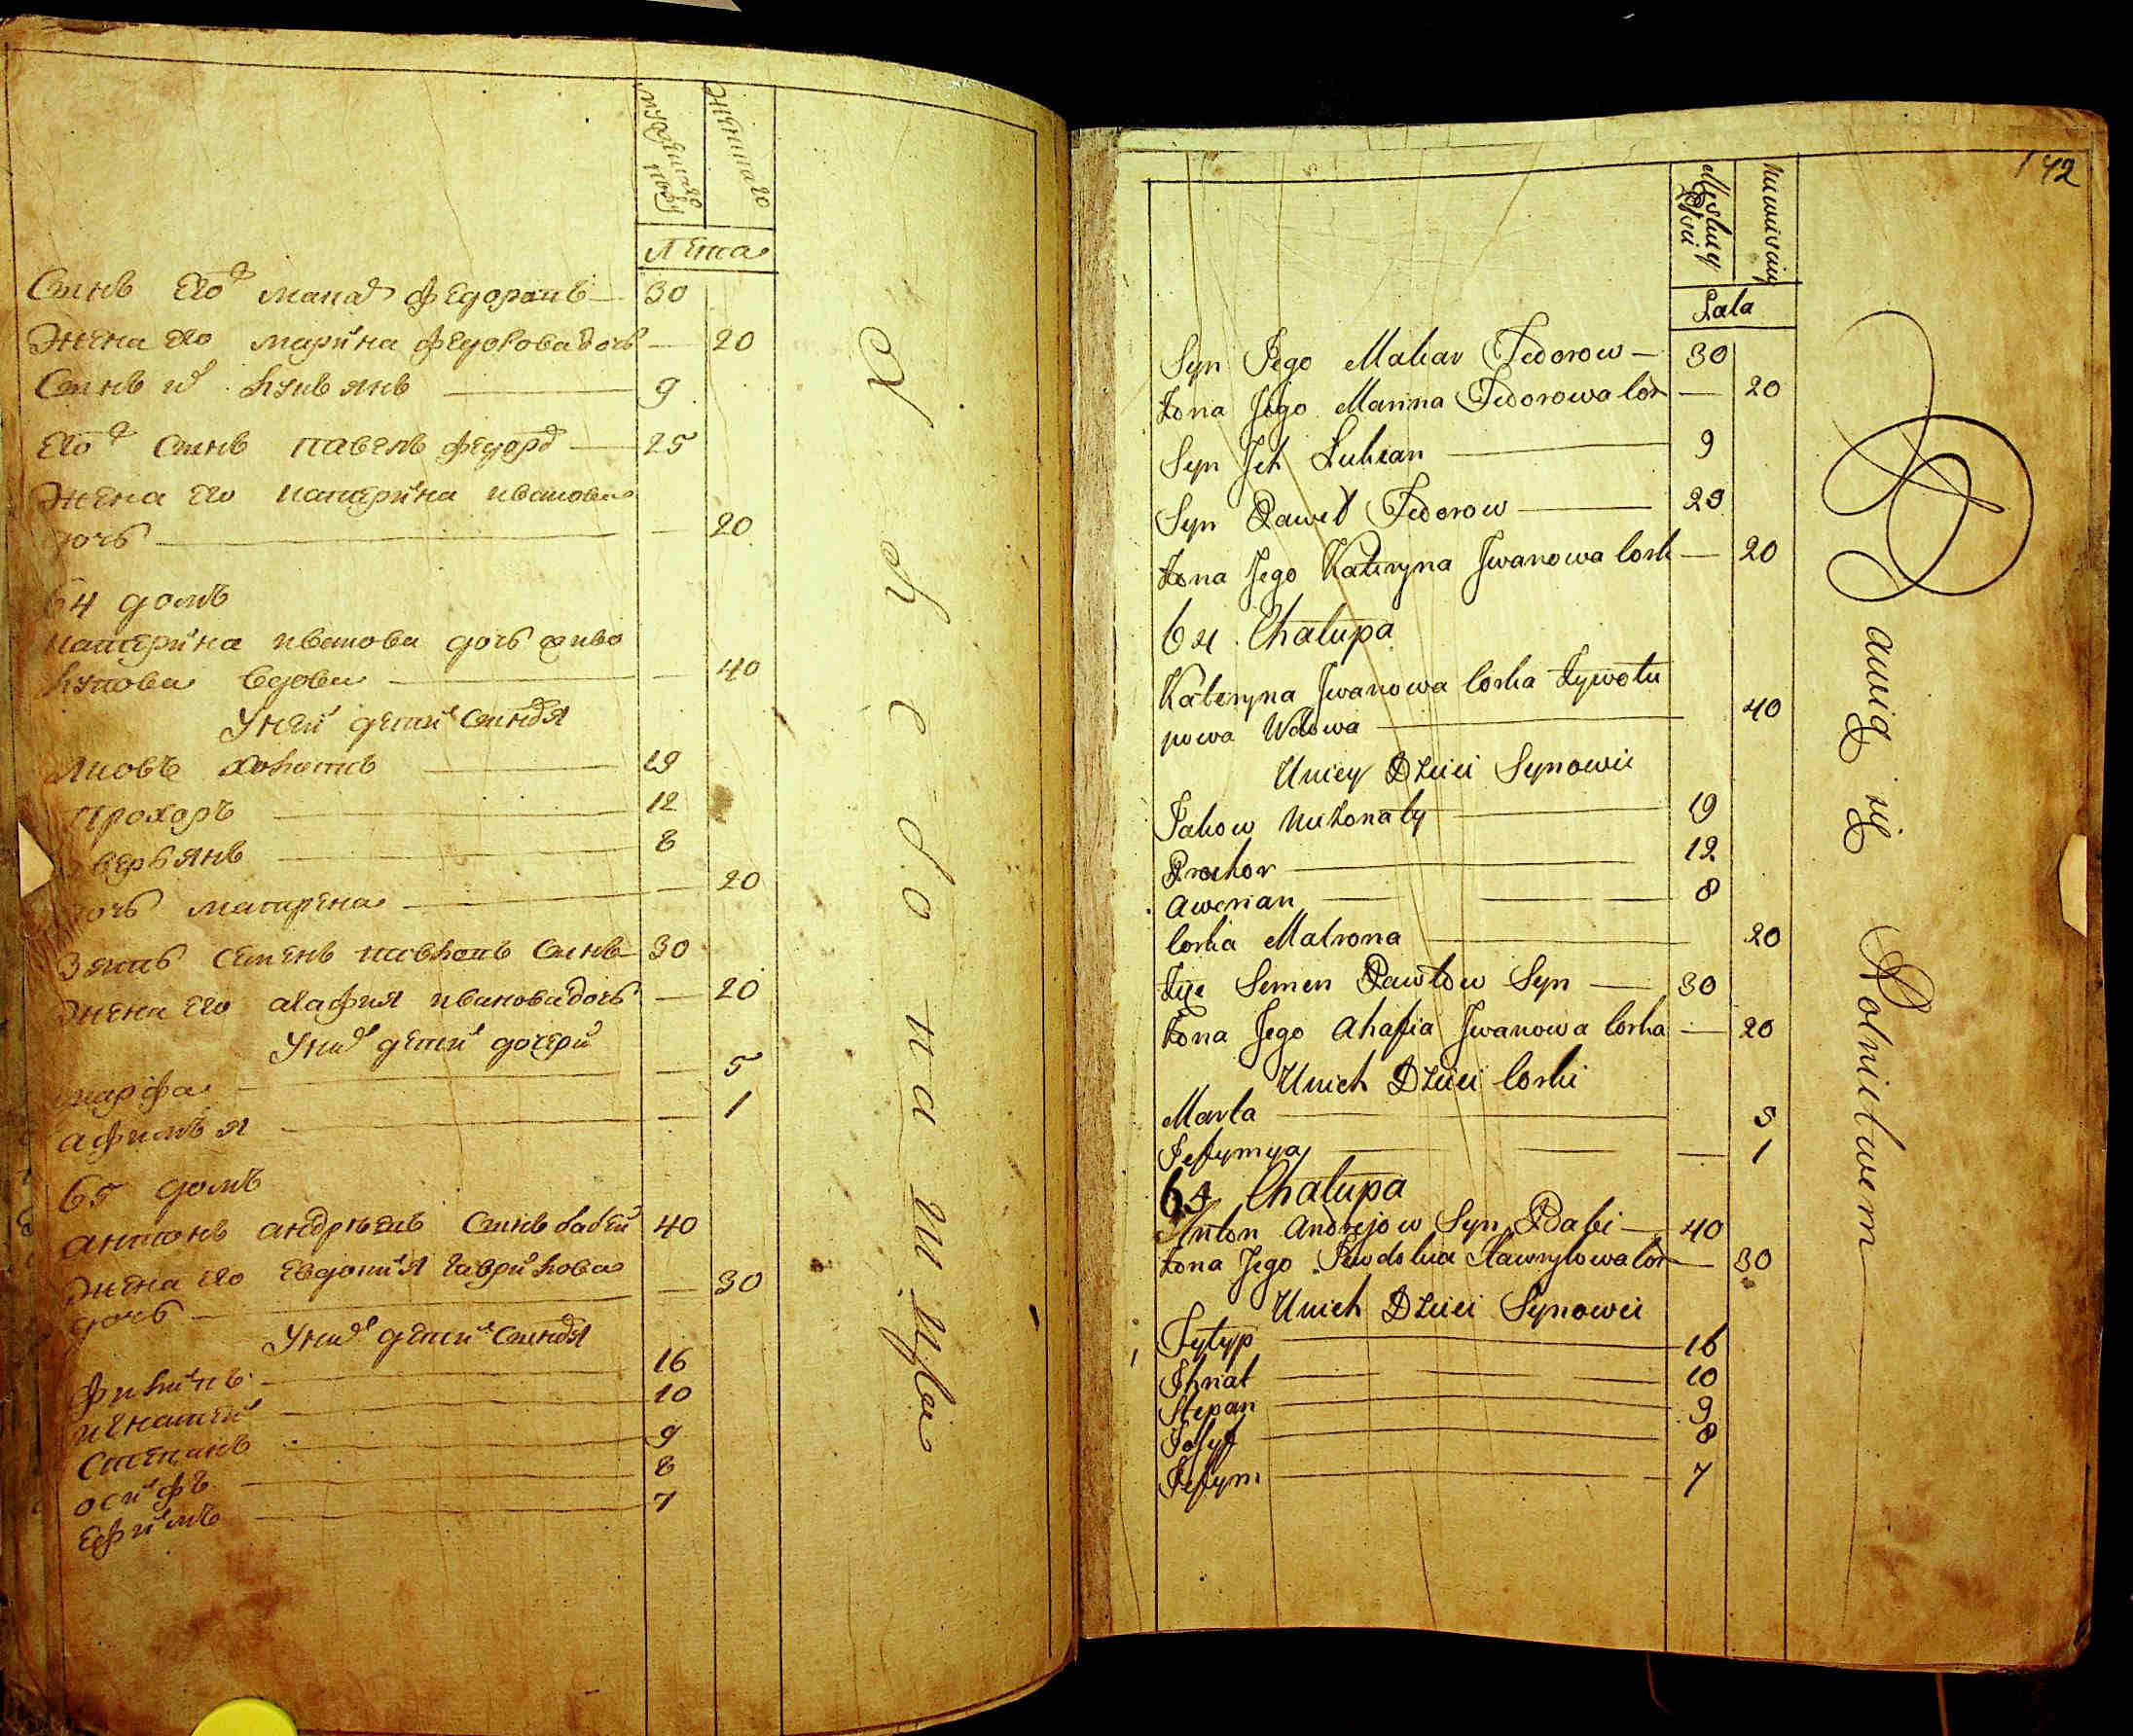 мужеска
полу
женска
Лета
Синъ его макар федоровъ — 30
Жена его марина федоровадочь — 20
Синъ их лукянъ — 9
его синъ павелъ федор — 25
Жена его катерина иванова
дочь — 20
64 домъ
катерина иванова дочь живо
тупова вдова — 40
У ней дети синовя
Яковъ холостъ — 19
Прохоръ — 12
аверьянъ — 8
дочь матрена — 20
Зять семенъ павловъ синъ — 30
Жена его агафия ивановадочь — 20
У них дети дочери
марфа — 5
афимъя — 1
65 домъ
антонъ андрѣевъ синъ бабей 40
Жена его евдокия гаврилова
дочь — 30
У них дети синовя
филипъ — 16
игнатей — 10
степанъ — 9
осифъ — 8
ефимъ — 7
142
Męskiey
Płci
Niewieściey
Lata
Syn Jego Makar Fedorow — 30
Żona Jego Marina Fedorowa Cór — 20
Syn Jch Lukian — 9
Syn Paweł Fedorow — 29
Żona Jego Kateryna Jwanowa Cork — 20
64 Chałupa
Kateryna Jwanowa Corka Żywotu
powa Wdowa — 40
Uniey Dzieci Synowie
Jakow Nieżonaty — 19
Prochor — 12
Awerian — 8
Corka Matrona — 20
Zięć Semen Pawłow Syn — 30
Żona Jego Ahafia Jwanowa Corka — 20
Unich Dzieci Corki
Marta — 5
Jefymya — 1
65 Chałupa
Anton Andrejow Syn Babi — 40
Żona Jego Jewdokia Hawryłowa Cór — 30
Unich Dzieci Synowie
Fyłyp — 16
Jhnat — 10
Stepan — 9
Josyf — 8
Jefym — 7
Bawią się Rolnictwem